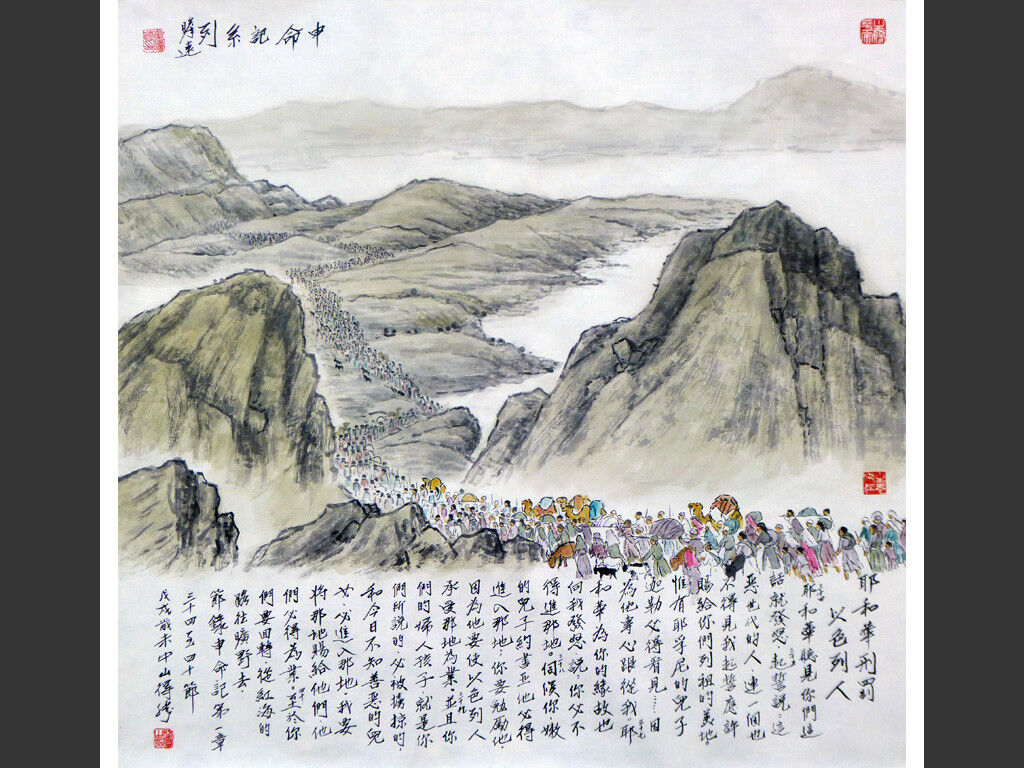 申命記系列
耶和華刑罰
以色列人
三十四 耶和華聽見你們這
話就發怒，起誓說：三十五 這
惡世代的人，連一個也
不得見我起誓應許
賜給你們列祖的美地。
三十六 惟有耶孚尼的兒子
迦勒必得看見……因
為他專心跟從我。三十七 耶
和華為你的緣故也
向我發怒，說：你必不
得進那地。三十八 伺候你、嫩
的兒子約書亞，他必得
進入那地，你要勉勵他，
因為他要使以色列人
承受那地為業。三十九 並且你
們的婦人孩子，就是你
們所說的、必被擄掠的，
和今日不知善惡的兒
女，必進入那地。我要
將那地賜給他們，他
們必得為業。四十 至於你
們要回轉，從紅海的
路往曠野去。
節錄申命記第一章
三十四至四十節
戊戌歲末中山得